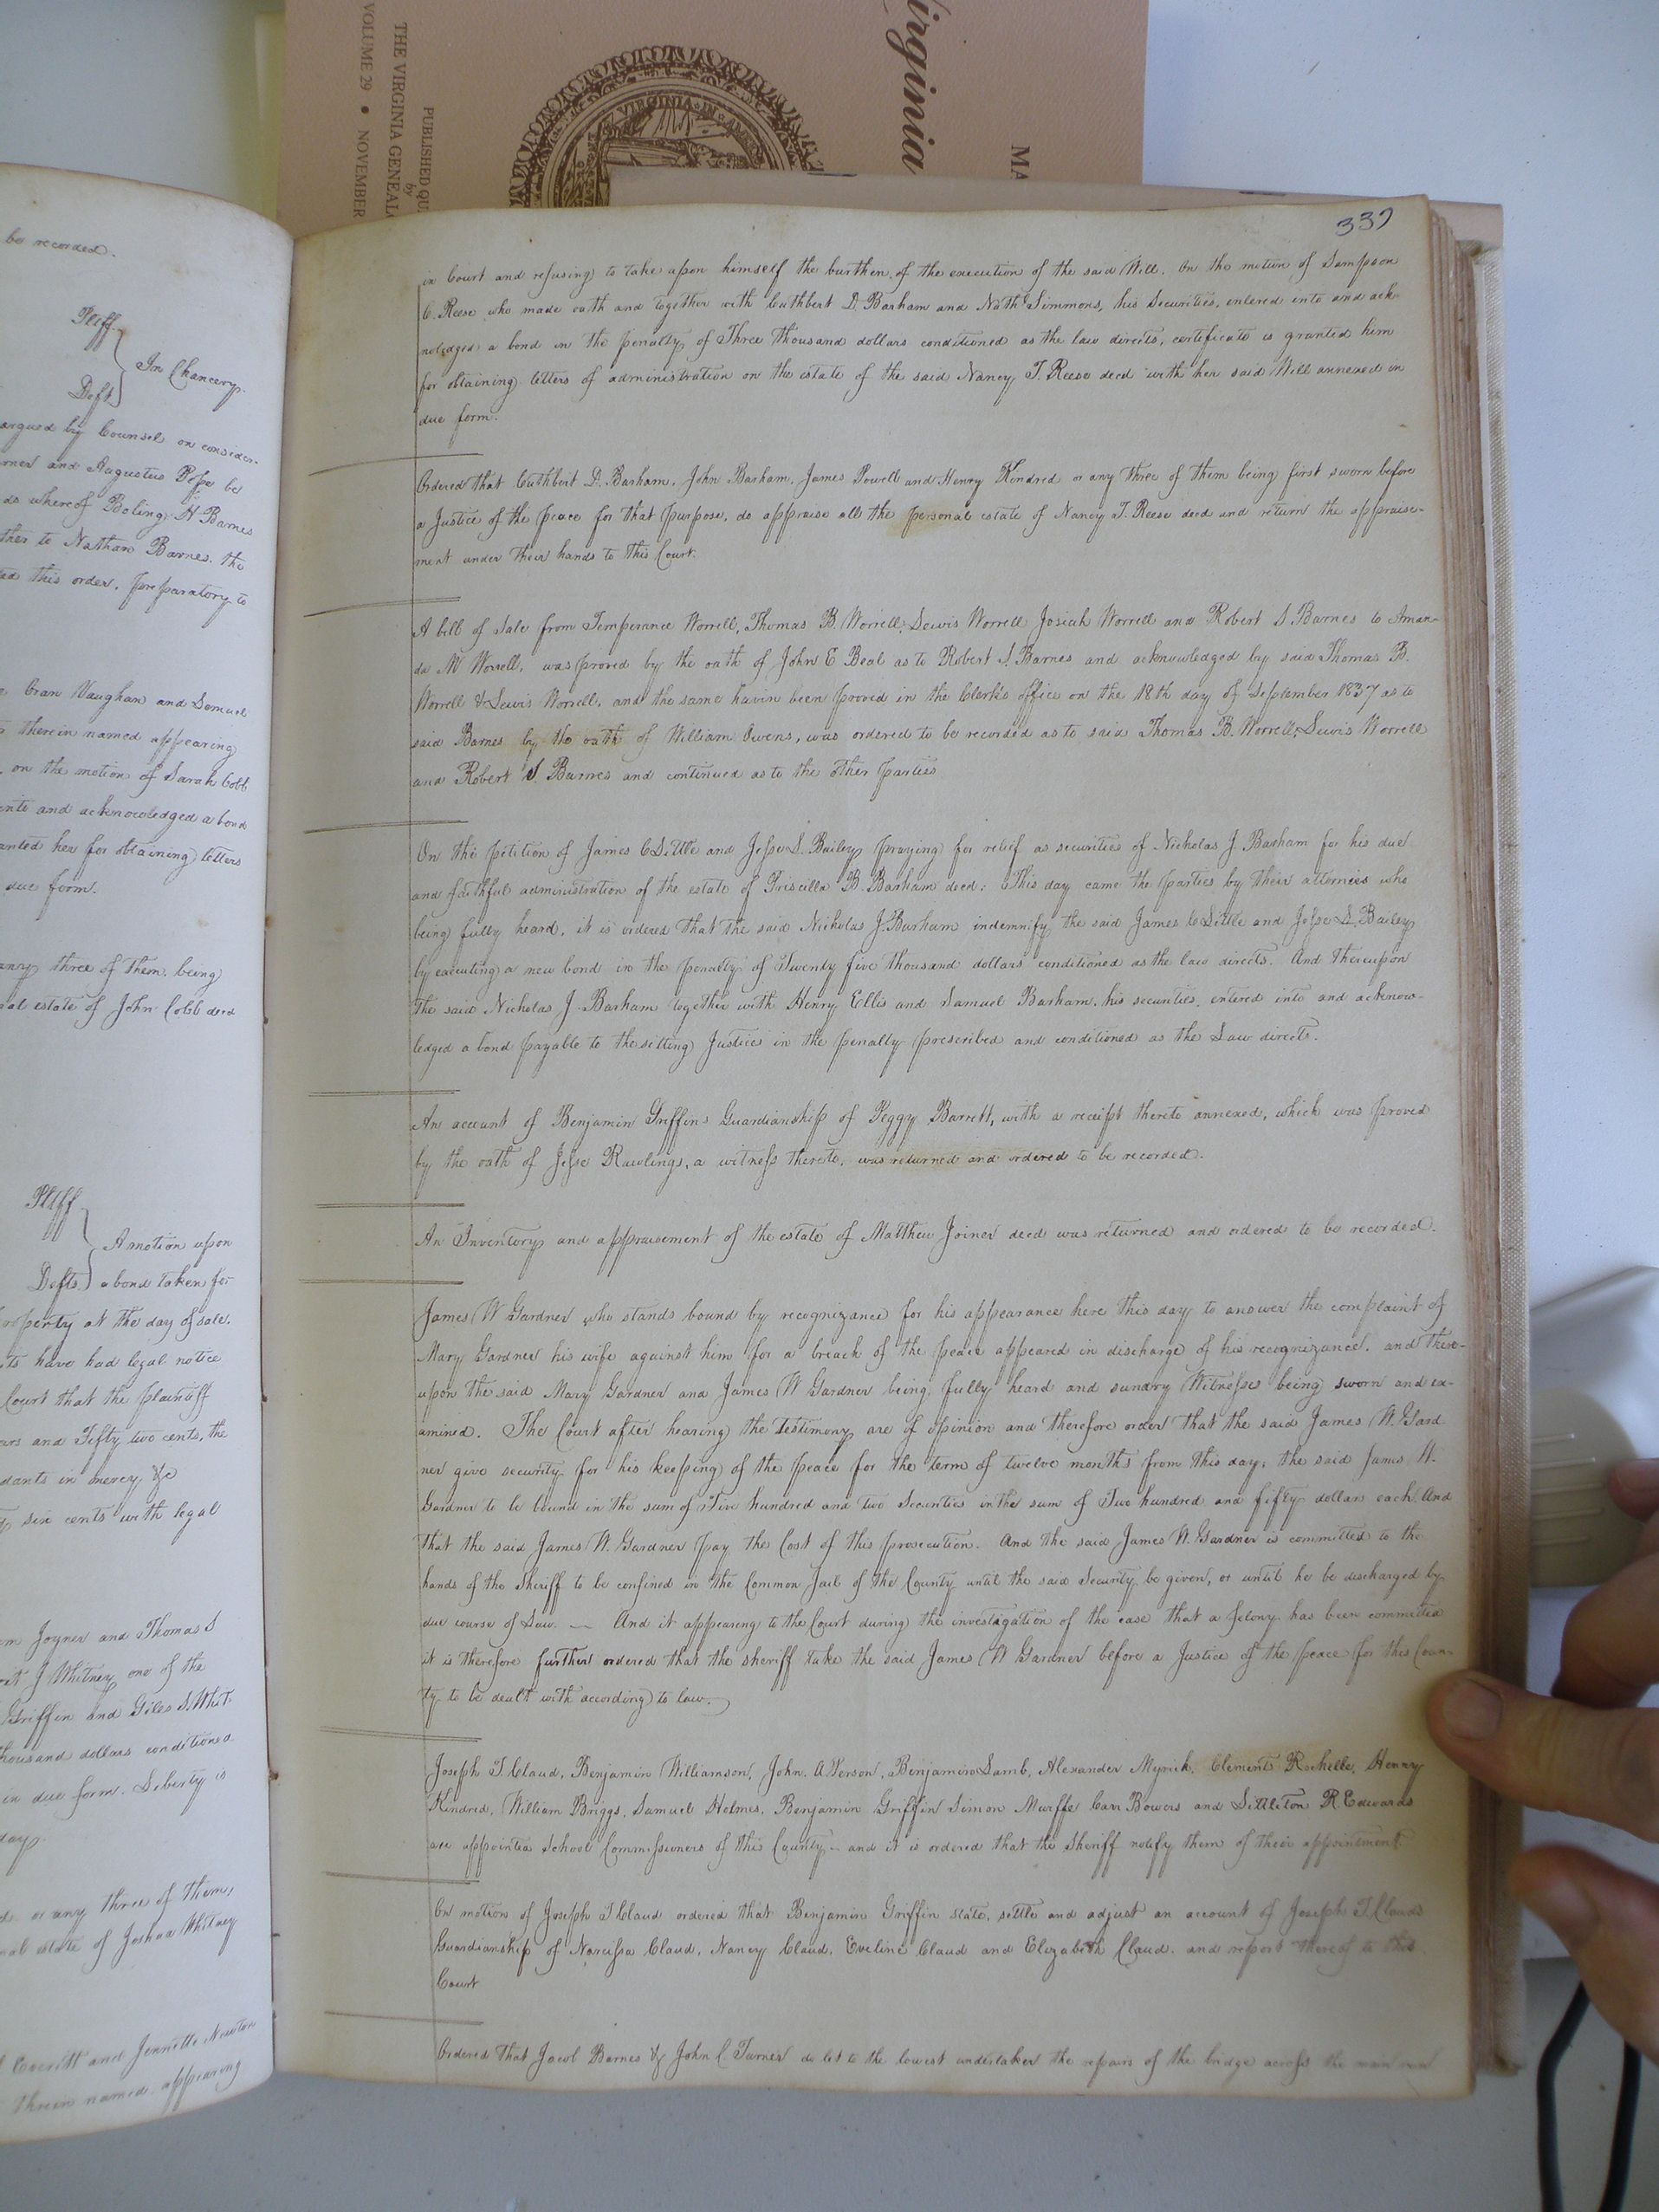 Virginia
MA
PUBLISHED QU
by
THE VIRGINIA GENEAL
VOLUME 29 • NOVEMBER
VIRGINIA IN A
be recorded.
Pltff
In Chancery.
Deft
argued by Counsel on consider-
and Augustus be
whereof Boling H Barnes
to Nathan Barnes. the
this order, preparatory to
Vaughan and Samuel
therein named appearing
on the motion of Sarah Cobb
and acknowledged a bond
her for obtaining letters
due form.
any three of them, being
estate of John Cobb decd
Pltff
A motion upon
Defts. a bond taken for
property at the day of sale.
have had legal notice
Court that the plaintiff
and Fifty two cents, the
in mercy, &c
six cents with legal
Joyner and Thomas S
J Whitney one of the
Griffin and Giles S. Whit-
thousand dollars conditioned
in due form. Liberty is
day
or any three of them,
estate of Joshua Whitney
Everitt and Jennette Newton
therein named appearing
337
in Court and refusing to take upon himself the burthen of the execution of the said Will. On the motion of Sampson
C. Reese who made oath and together with Cuthbert D. Barham and Nath Simmons, his Securities, entered into and ack-
noledged a bond in the penalty of Three thousand dollars conditioned as the law directs, certificate is granted him
for obtaining letters of administration on the estate of the said Nancy T. Reese decd with her said Will annexed in
due form.
Ordered that Cuthbert D. Barham, John Barham, James Powell and Henry Kindred or any three of them being first sworn before
a Justice of the peace for that purpose, do appraise all the personal estate of Nancy T. Reese decd and return the appraise-
ment under their hands to this Court.
A bill of Sale from Temperance Worrell, Thomas B. Worrell, Lewis Worrell Josiah Worrell and Robert S Barnes to Aman-
da M Worrell, was proved by the oath of John E Beal as to Robert S. Barnes and acknowledged by said Thomas B.
Worrell & Lewis Worrell, and the same havin been proved in the Clerk's office on the 18th day of September 1837 as to
said Barnes by the oath of William Owens, was ordered to be recorded as to said Thomas B. Worrell, Lewis Worrell
and Robert S. Barnes and continued as to the other parties
On the petition of James C Little and Jesse S. Bailey praying for relief as securities of Nicholas J. Barham for his due
and faithful administration of the estate of Priscilla B. Barham decd: This day came the parties by their attornies who
being fully heard, it is ordered that the said Nicholas J. Barham indemnify the said James C Little and Jesse S. Bailey
by executing a new bond in the penalty of Twenty five thousand dollars conditioned as the law directs. And thereupon
the said Nicholas J. Barham together with Henry Ellis and Samuel Barham, his securities, entered into and acknow-
ledged a bond payable to the sitting Justices in the penalty prescribed and conditioned as the Law directs.
An account of Benjamin Griffins Guardianship of Peggy Barrett, with a receipt thereto annexed, which was proved
by the oath of Jesse Rawlings, a witness thereto, was returned and ordered to be recorded.
An Inventory and appraisement of the estate of Matthew Joiner decd was returned and ordered to be recorded.
James W Gardner who stands bound by recognizance for his appearance here this day to answer the complaint of
Mary Gardner his wife against him for a breach of the peace appeared in discharge of his recognizance. and there-
upon the said Mary Gardner and James W Gardner being fully heard and sundry Witnesses being sworn and ex-
amined. The Court after hearing the Testimony are of opinion and therefore order that the said James W. Gard
ner give security for his keeping of the peace for the term of twelve months from this day, the said James W.
Gardner to be bound in the sum of Five hundred and two Securities in the sum of Two hundred and fifty dollars each. And
that the said James W. Gardner pay the Cost of this prosecution. And the said James W. Gardner is committed to the
hands of the Sheriff to be confined in the Common Jail of the County until the said Security be given, or until he be discharged by
due course of Law. — And it appearing to the Court during the investagation of the case that a felony has been committed
it is therefore further ordered that the sheriff take the said James W Gardner before a Justice of the peace for this Coun-
ty to be dealt with according to law.
Joseph T Claud, Benjamin Williamson, John A Person, Benjamin Lamb, Alexander Myrick, Clement Rochelle, Henry
Kindred, William Briggs, Samuel Holmes, Benjamin Griffin Simon Murffe Carr Bowers and Littleton R Edwards
are appointed School Commissioners of this County — and it is ordered that the Sheriff notify them of their appointment
On motion of Joseph T Claud ordered that Benjamin Griffin state, settle and adjust an account of Joseph T. Clauds
Guardianship of Narcissa Claud, Nancy Claud, Eveline Claud and Elizabeth Claud. and report thereof to this
Court
Ordered that Jacob Barnes & John C Turner do let to the lowest undertaker the repairs of the bridge across the